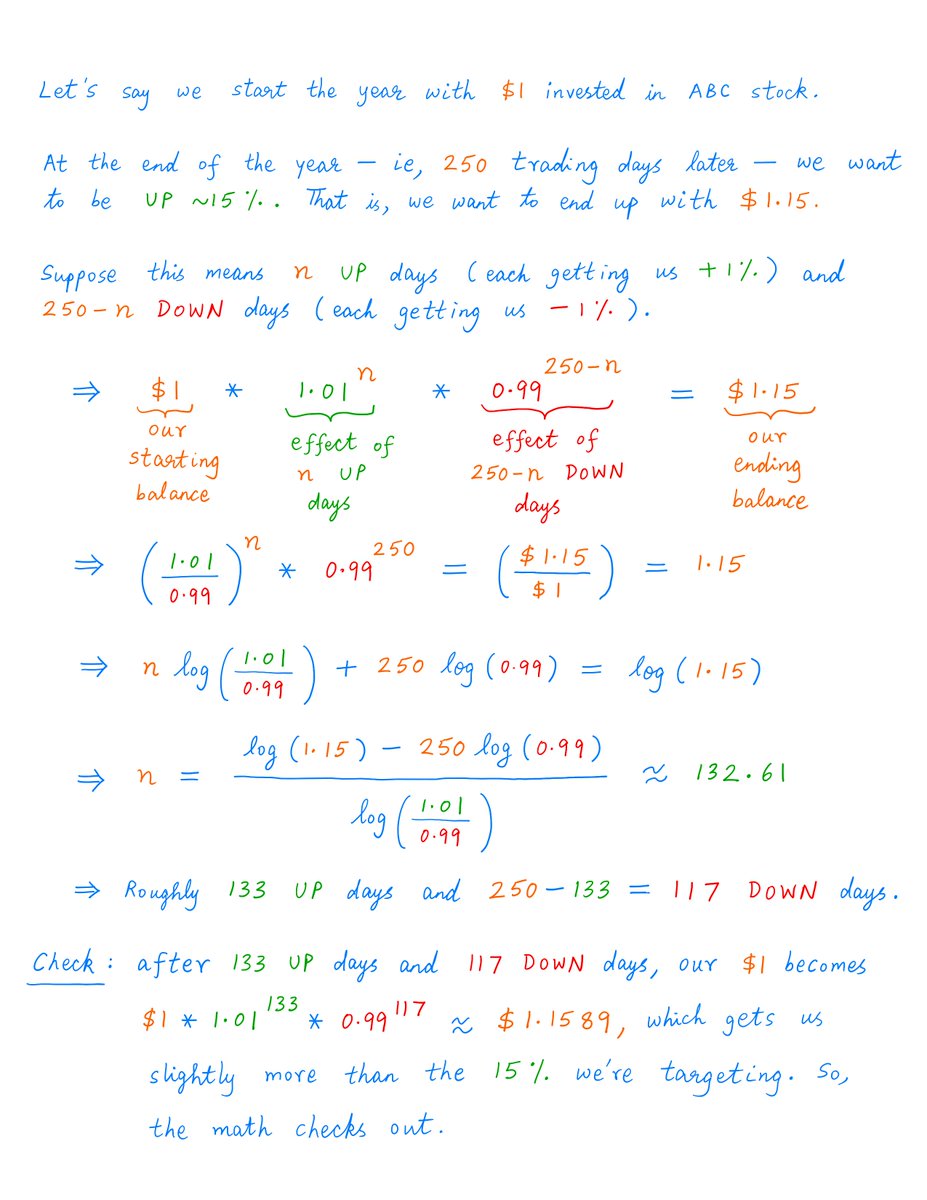 Let's say we start the year with $1 invested in ABC stock.
At the end of the year — ie, 250 trading days later — we want
to be UP ~15%. That is, we want to end up with $1.15.
Suppose this means n UP days (each getting us +1%) and
250-n DOWN days (each getting us -1%).
⇒ $1 * 1.01^n * 0.99^(250-n) = $1.15
our starting balance
effect of n UP days
effect of 250-n DOWN days
our ending balance
⇒ (1.01/0.99)^n * 0.99^250 = ($1.15/$1) = 1.15
⇒ n log(1.01/0.99) + 250 log(0.99) = log(1.15)
⇒ n = (log(1.15) - 250 log(0.99)) / log(1.01/0.99) ≈ 132.61
⇒ Roughly 133 UP days and 250-133 = 117 DOWN days.
Check: after 133 UP days and 117 DOWN days, our $1 becomes
$1 * 1.01^133 * 0.99^117 ≈ $1.1589, which gets us
slightly more than the 15% we're targeting. So,
the math checks out.